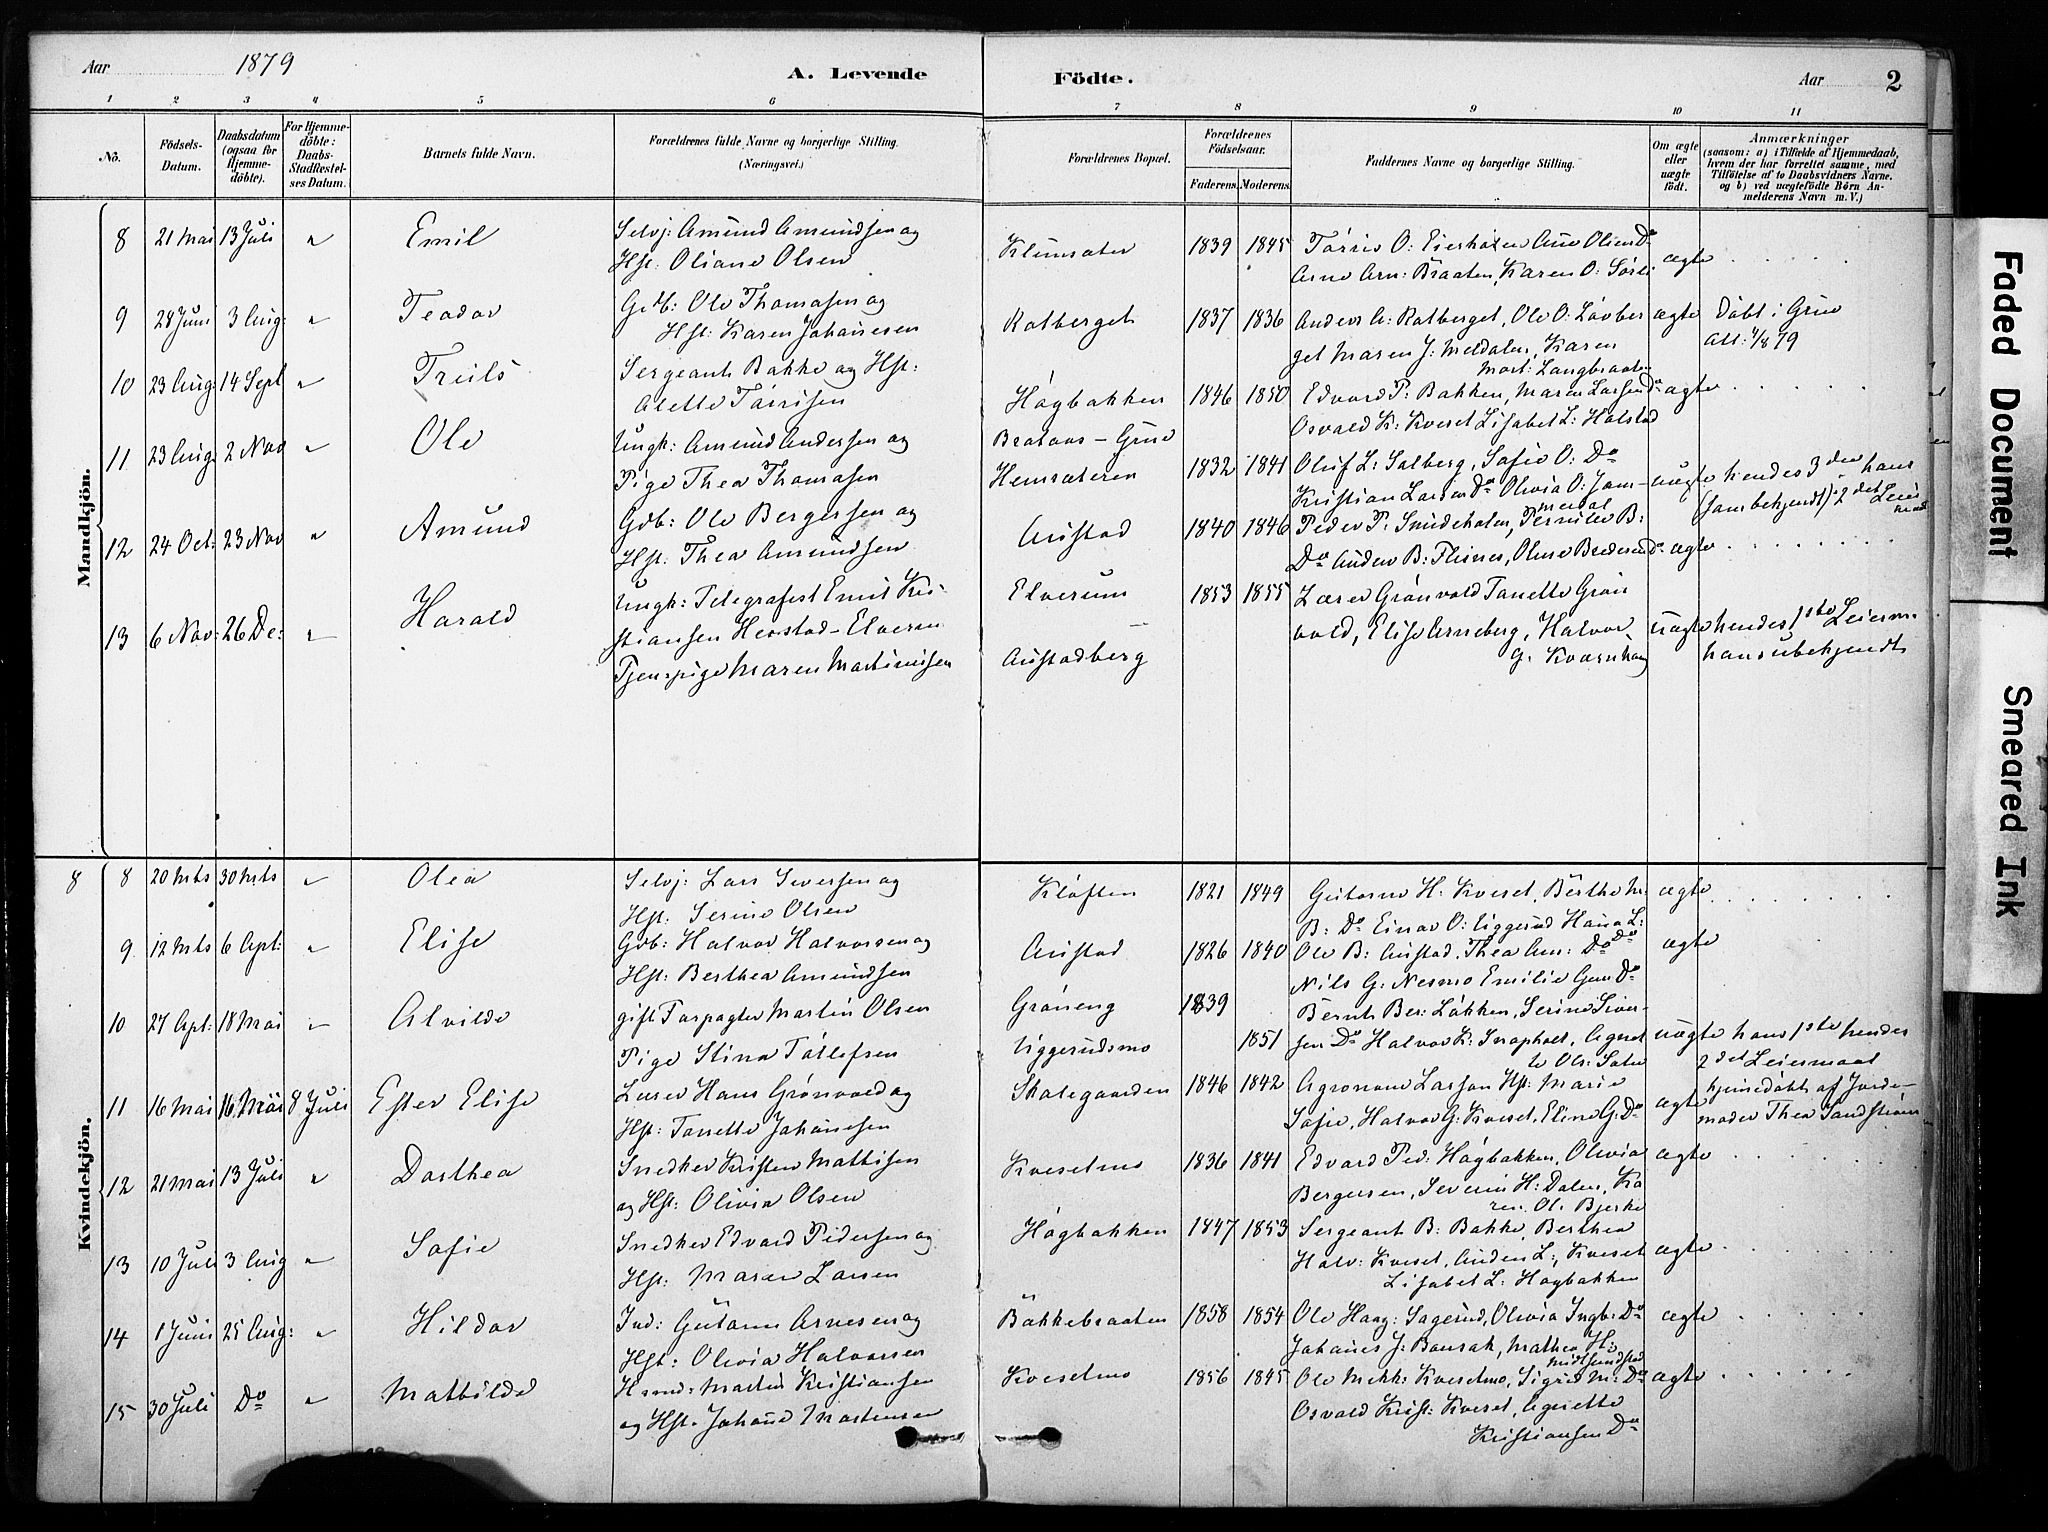 Aar 1879
A. Levende Födte.
Aar 2
1 2 3 4 5 6 7 8 9 10 11
No.
Födsels-Datum.
Daabsdatum (ogsaa for Hjemme-döbte).
For Hjemme-döbte: Daabs-Stadfæstel-ses Datum.
Barnets fulde Navn.
Forældrenes fulde Navne og borgerlige Stilling. (Næringsvei.)
Forældrenes Bopæl.
Forældrenes Födselsaar.
Faderens. Moderens.
Faddernes Navne og borgerlige Stilling.
Om ægte eller uægte födt.
Anmærkninger (saasom: a) i Tilfælde af Hjemmedaab, hvem der har forrettet samme, med Tilföielse af to Daabsvidners Navne. og b) ved uægtefödte Börn An-melderens Navn m. V.)
Mandkjön.
8 21 Mai 13 Juli " Emil Selvj: Amund Amundsen og
Hst: Oliane Olsen
1839 1845
Arne Arn: Braaten, Karen O:
ægte
9 28 Juni 3 Aug: " Teodor Gdb: Ole Thomasen og
Hst: Karen Johannesen
Kolberget 1837 1836 Anders A: Kolberget, Ole O: Lövber
get Maren J: Meldalen, Karen
Mort: Langbraaten
ægte Döbt i Grue
Att: 4/8 79
10 23 Aug: 14 Sept " Truls Sergeant Bakke og Hst:
Alette Törrisen
Högbakken 1846 1850 Edvard P: Bakken, Maren Larsen Do
Osvald K: Kveset Lisabet L: Holstad
ægte
11 23 Aug: 2 Nov " Ole Ungk: Amund Andersen og
Pige Thea Thomasen
Grue
Hemsæteren 1832 1841 Oluf L: Solberg, Sofie O: Do
Kristian Larsen Do Olivia O:
uægte hendes 3die hans
12 24 Oct: 23 Nov " Amund Gdb: Ole Bergersen og
Hst: Thea Amundsen
Austad 1840 1846 Peder P: Pernille B:
Do B: Flisnes,
ægte
13 6 Nov: 26 De: " Harald Ungk: Telegrafist Emil Kri-
stiansen Elverum
Tjenspige Maren Martinusen
Elverum
Austadberg
1853 1855 Lærer Grönvold Tanette Grön
vold, Elise Arneberg, Halvor
G. Kvernhaug
uægte hendes 1ste Leierm.
hans ubekjendt
Kvindekjön.
8 8 20 Mts 30 Mts " Olea Selvj: Lars Iversen og
Hst: Serine Olsen
Klöften 1821 1849 H: Kveset, Berthe M:
B: Do Einar O: Uggerud Hana L:
Do
ægte
9 12 Mts 6 Apr: " Elise Gdb: Halvor Halvorsen og
Hst: Berthea Amundsen
Austad 1826 1840 Ole B: Austad, Thea Am: Do
Nils G: Nesmo Emilie Gun Do
ægte
10 27 Apr: 18 Mai " Alvilde gift Forpagter Martin Olsen
Pige Stina Tollefsen
Gröneng
Uggerudsmo
1839
1851
Bernt Ber: Lökken, Serine Siver-
sen Do Halvor K: Snapholt, Agnet
te Ols:
uægte hans 1ste hendes
2det Leiermaal
11 16 Mai 16 Mai 8 Juli Ester Elise Lærer Hans Grönvold og
Hst: Tanette Johannesen
Skolegaarden 1846 1842 Agronom Larsen Hst: Marie
Sofie, Halvor G: Kveset, Eline G: Do
ægte hjemedöbt af Jorde-
moder Thea Sandström
12 21 Mai 13 Juli " Dorthea Snedker Kristen Mattisen
og Hst: Olivia Olsen
Kvesetmo 1836 1841 Edvard Ped: Högbakken, Olivia
Bergersen, Severin H: Dalen, Ka
ren Ol. Bjerke
ægte
13 10 Juli 3 Aug " Sofie Snedker Edvard Pedersen og
Hst: Maren Larsen
Högbakken 1847 1853 Sergeant B: Bakke, Berthea
Halv: Kveset, Anders L: Kveset
Lisabet L: Högbakken
ægte
14 1 Juni 25 Aug: " Hildor Ind: Gutorm Arnesen og
Hst: Olivia Halvorsen
Bakkebraaten 1858 1854 Ole Haag: Sagerud, Olivia Ingb: Do
Johanes J: Mathea H:
Midtsundstad
ægte
15 30 Juli Do " Mathilde Martin Kristiansen
og Hst. Johane Mortensen
Kvesetmo 1856 1845 Ole Mikk: Kvesetmo, Sigrid M: Do
Osvald Krist: Kveset, Agnette
Kristiansen Do
ægte
Faded Document
Smeared Ink